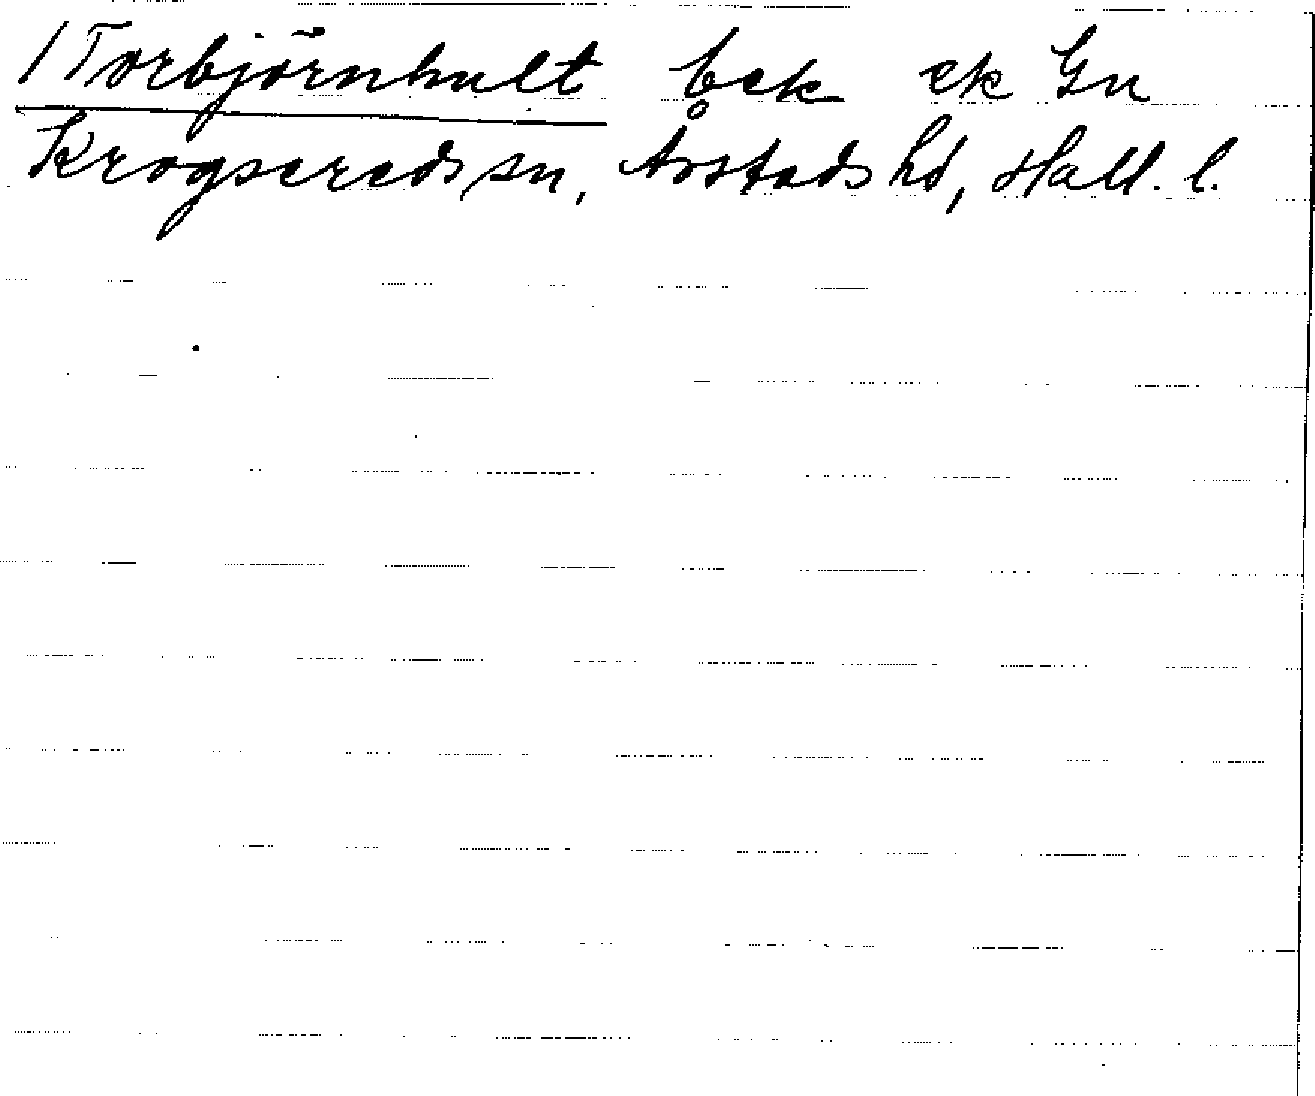 /Torbjörnhult bek ek Gn
Krogsereds sn, Årstads hd, Hall. l.